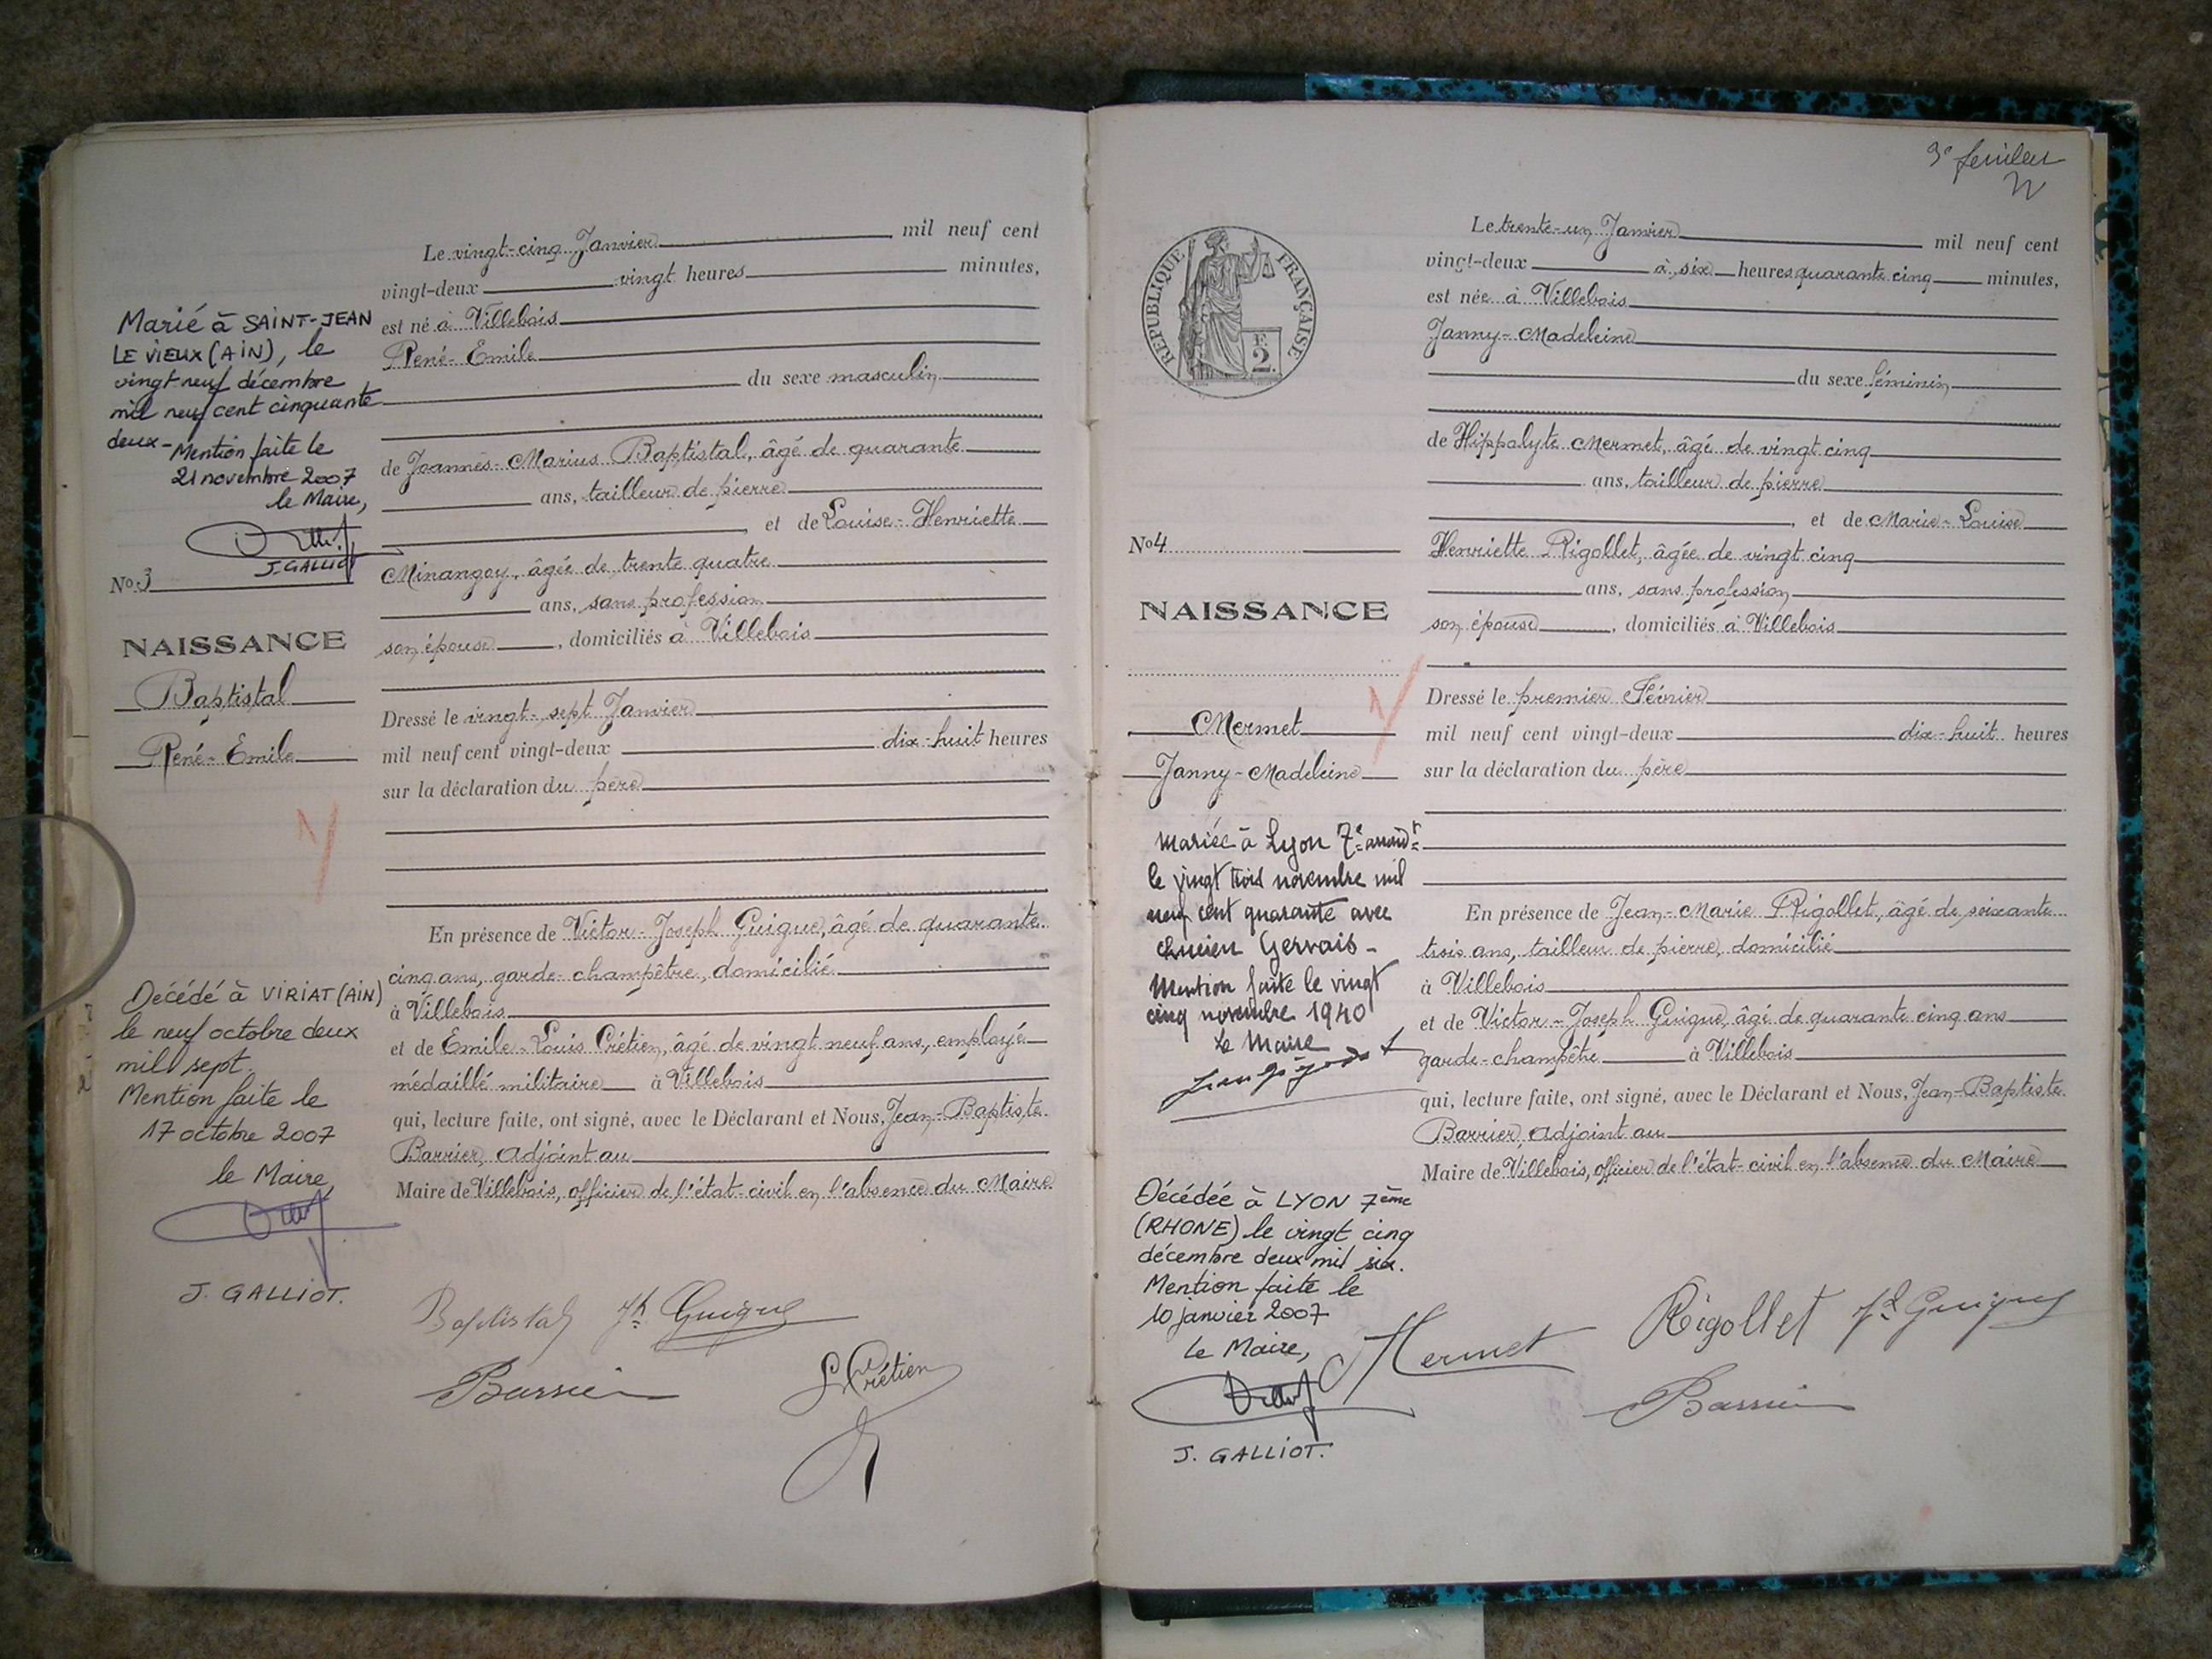 Le vingt-cinq Janvier mil neuf cent
vingt-deux vingt heures minutes,
est né à Villebois
René-Emile
du sexe masculin
de Joannès-Marius Baptistal, âgé de quarante
ans, tailleur de pierre
et de Louise-Henriette
Minangoy, âgée de trente quatre
ans, sans profession
son épouse, domiciliés à Villebois
Dressé le vingt-sept Janvier
mil neuf cent vingt-deux dix-huit heures
sur la déclaration du père
En présence de Victor-Joseph Guigue, âgé de quarante
cinq ans, garde-champêtre, domicilié
à Villebois
et de Emile-Louis Crétien, âgé de vingt neuf ans, employé
médaillé militaire à Villebois
qui, lecture faite, ont signé, avec le Déclarant et Nous, Jean-Baptiste
Barrier, Adjoint au
Maire de Villebois, officier de l'état-civil en l'absence du Maire
Baptistal Jh Guigue
Barrier L Crétien
Marié à SAINT-JEAN
LE VIEUX (AIN), le
vingt neuf décembre
mil neuf cent cinquante
deux - Mention faite le
21 novembre 2007
le Maire,
J. GALLIOT
No 3
NAISSANCE
Baptistal
René-Emile
Décédé à VIRIAT (AIN)
le neuf octobre deux
mil sept.
Mention faite le
17 octobre 2007
le Maire,
J. GALLIOT.
3e feuillet
REPUBLIQUE FRANÇAISE
F.
2.
Le trente-un Janvier mil neuf cent
vingt-deux à six heures quarante cinq minutes,
est née à Villebois
Janny-Madeleine
du sexe féminin
de Hippolyte Mermet, âgé de vingt cinq
ans, tailleur de pierre
, et de Marie-Louise
Henriette Rigollet, âgée de vingt cinq
ans, sans profession
son épouse, domiciliés à Villebois
Dressé le premier Février
mil neuf cent vingt-deux dix-huit heures
sur la déclaration du père
En présence de Jean-Marie Rigollet, âgé de soixante
trois ans, tailleur de pierre, domicilié
à Villebois
et de Victor-Joseph Guigue, âgé de quarante cinq ans
garde-champêtre à Villebois
qui, lecture faite, ont signé, avec le Déclarant et Nous, Jean-Baptiste
Barrier, Adjoint au
Maire de Villebois, officier de l'état-civil en l'absence du Maire
Mermet Rigollet Jh Guigue
Barrier
No 4
NAISSANCE
Mermet
Janny-Madeleine
Mariée à Lyon 7e arrondt
le vingt trois novembre mil
neuf cent quarante avec
Lucien Gervais -
Mention faite le vingt
cinq novembre 1940
Le Maire
Décédée à LYON 7ème
(RHONE) le vingt cinq
décembre deux mil six.
Mention faite le
10 janvier 2007
Le Maire,
J. GALLIOT.